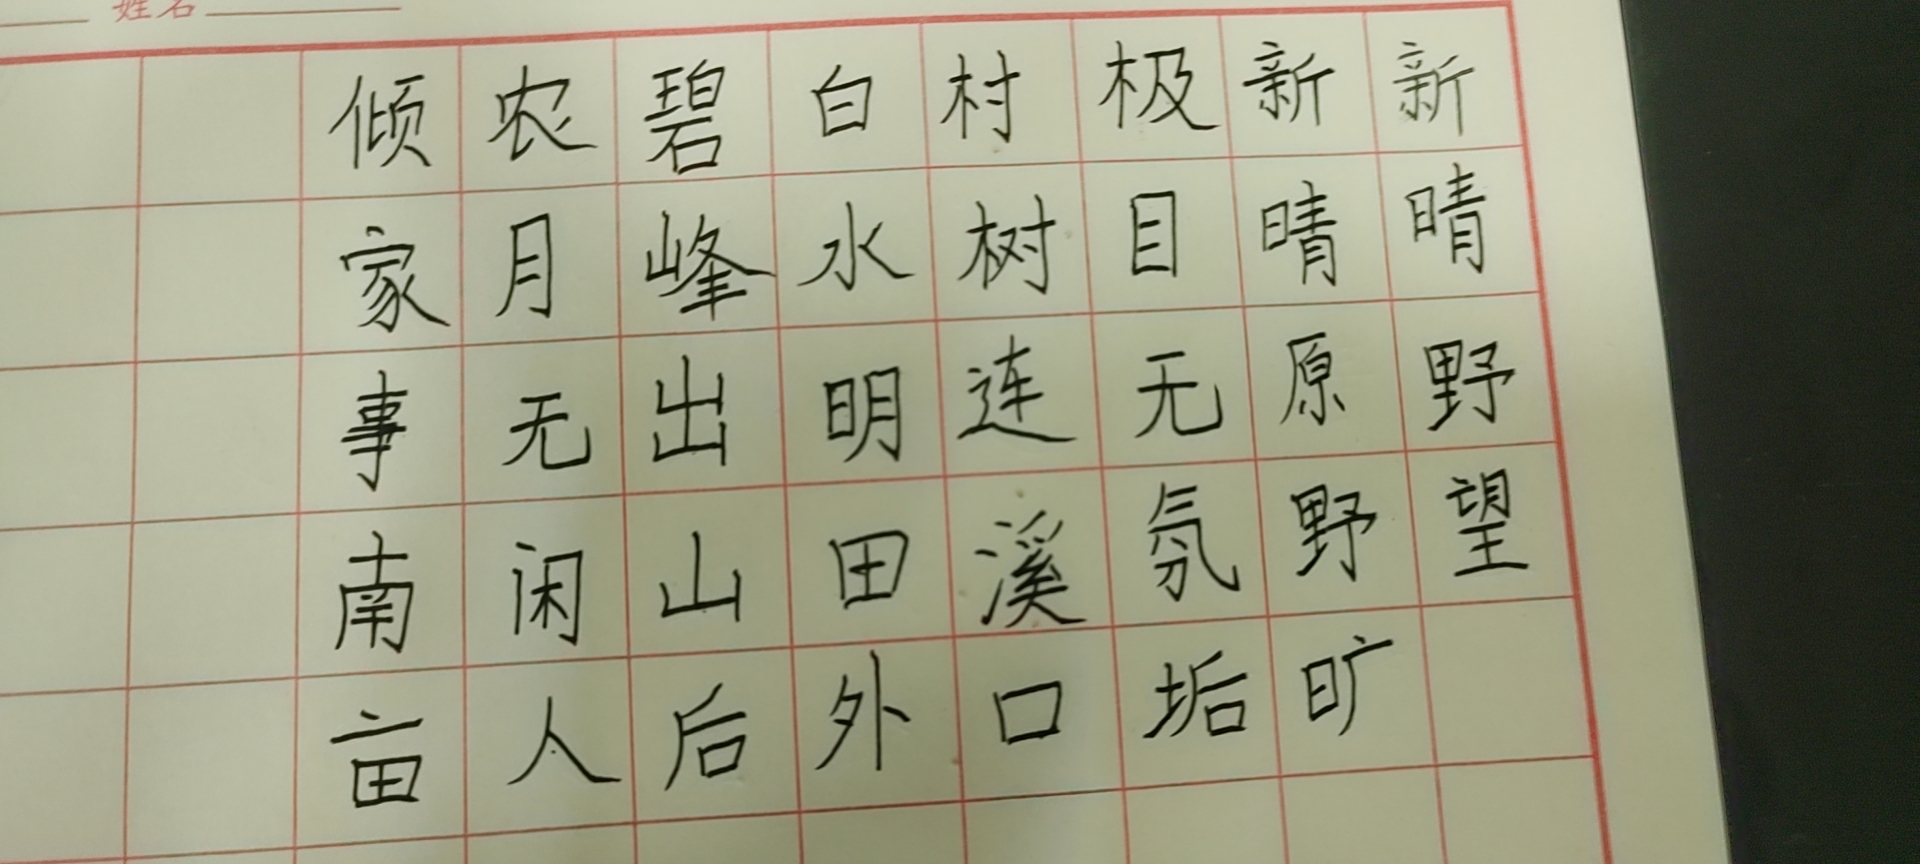 姓名
新晴野望
新晴原野旷
极目无氛垢
村树连溪口
白水明田外
碧峰出山后
农月无闲人
倾家事南亩